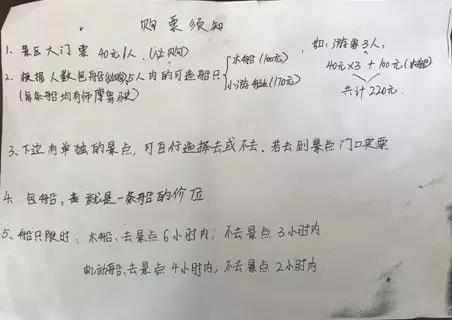 购票须知
1、景区大门票 40元/人、(必购)
2、根据人数包船(必购)、5人内的可选船只 {木船(100元) 小游艇(170元)
(每条船均有师傅驾驶)
如:游客3人:
40元×3 + 100元(木船)
共计 220元.
3、下边有单独的景点,可自行选择去或不去.若去到景点门口买票
4、包船:就是一条船的价位
5、船只限时:木船:去景点6小时内,不去景点3小时内
机动船:去景点4小时内,不去景点2小时内